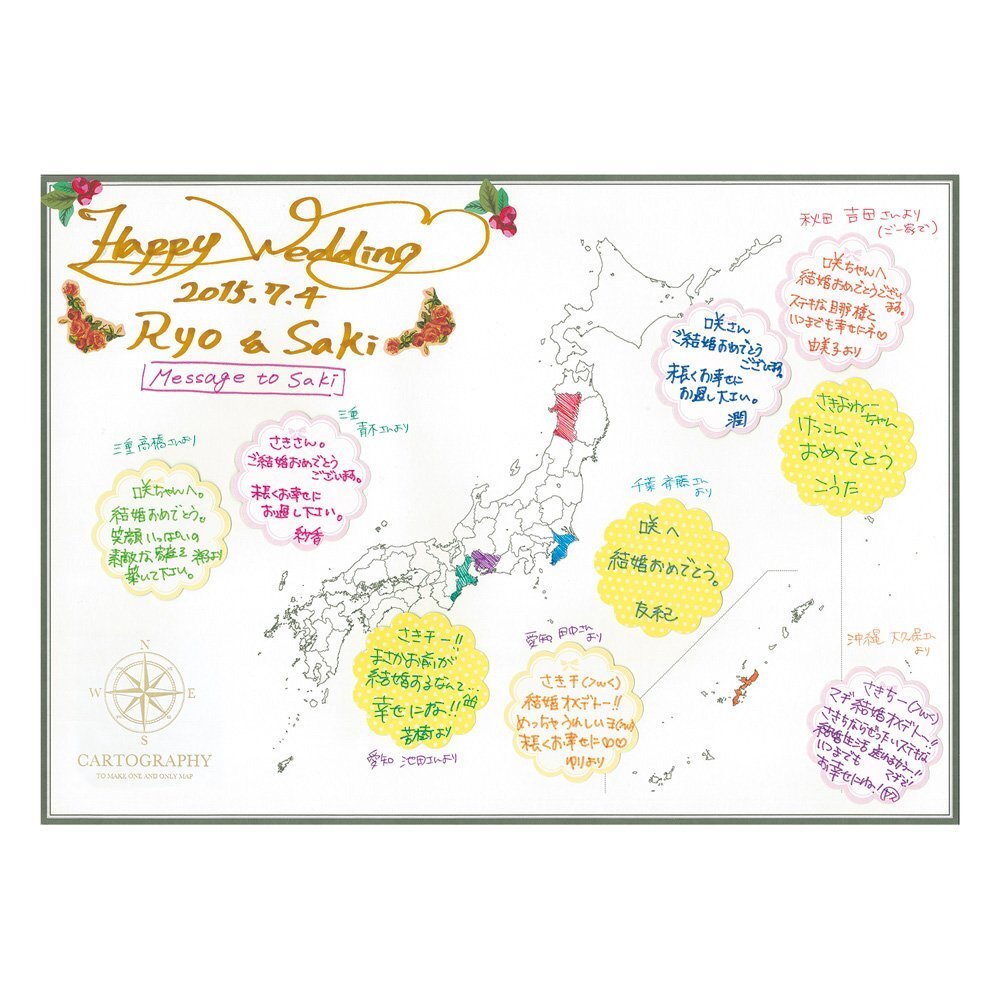 Happy Wedding
2015.7.4
Ryo & Saki
Message to Saki
秋田 吉田さんより
(ご一家で)
咲ちゃんへ
結婚おめでとうござい
ます。
ステキな旦那様と
いつまでも幸せにネ♡
由美子より
咲さん
ご結婚おめでとう
ございます。
末長くお幸せに
お過し下さい。
潤
けっこん
おめでとう
こうた
三重 高橋さんより
咲ちゃんへ。
結婚おめでとう。
笑顔いっぱいの
素敵な家庭を
築いて下さい。
より
三重
青木さんより
さきさん。
ご結婚おめでとう
ございます。
末長くお幸せに
お過し下さい。
紗香
千葉 斉藤さん
より
咲へ
結婚おめでとう。
友紀
さきチー!!
まさかお前が
結婚するなんて…
幸せにな!!
より
愛知 池田さんより
愛知 田中さん
より
さきチ(>ω<)
結婚オメデトー!!
めっちゃうれしいヨ
末長くお幸せに♡♡
ゆりより
沖縄 大久保さん
より
さきちー(>ω<)
マヂ結婚オメデトー!!
さきちならぜったいステキな
結婚生活
マヂで!
いつまでも
お幸せにね!
N
W
E
S
CARTOGRAPHY
TO MAKE ONE AND ONLY MAP